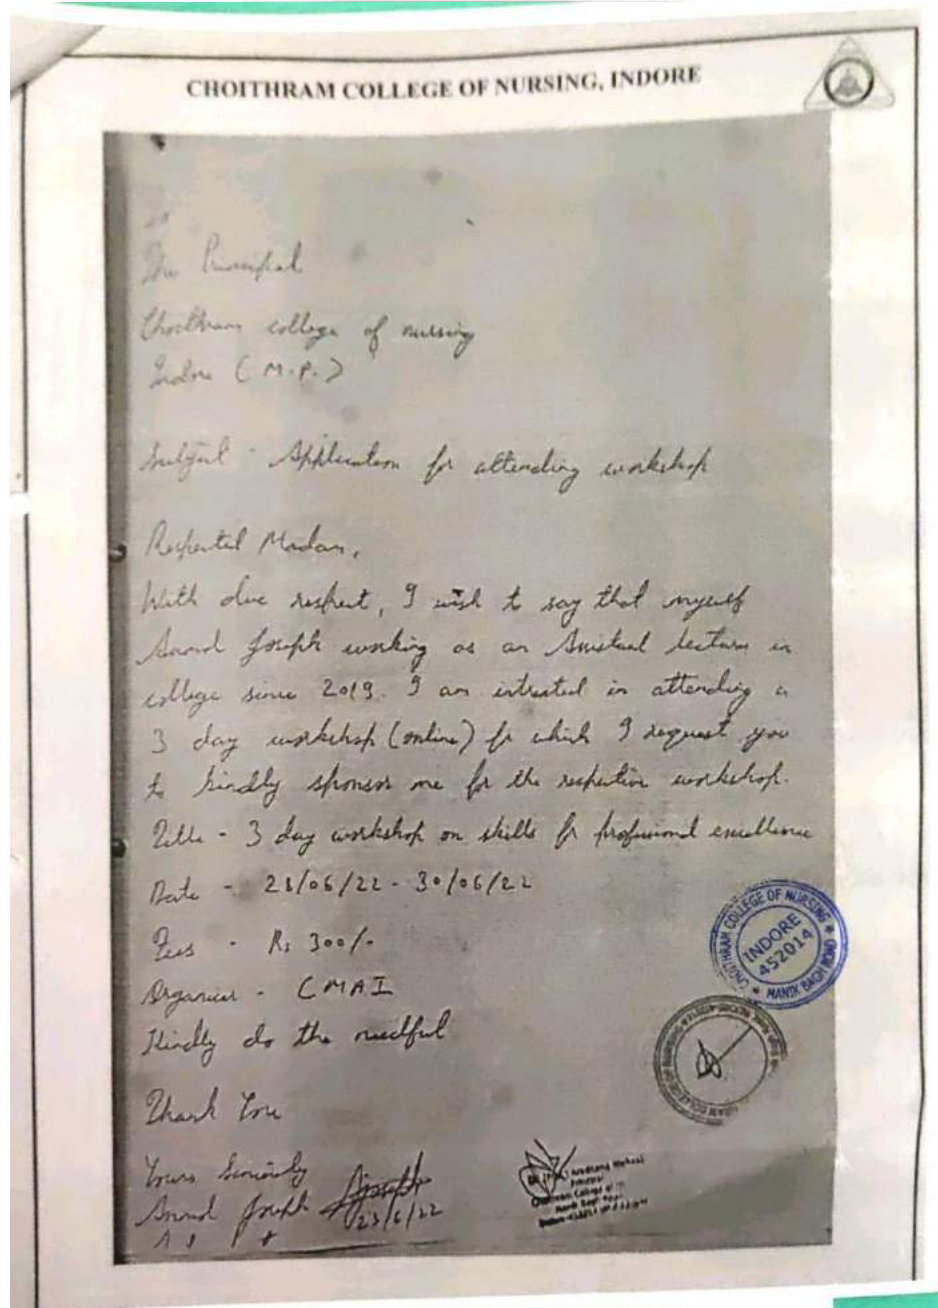 CHOITHRAM COLLEGE OF NURSING, INDORE
To
The Principal
Choithram college of nursing
Indore (M.P.)
Subject - Application for attending workshop
Respected Madam,
With due respect, I wish to say that myself
Anmol Joseph working as an Assistant lecture in
college since 2019. I am intrested in attending a
3 day workshop (online) for which I request you
to kindly sponsor me for the respective workshop.
Title - 3 day workshop on skills for profesional excellence
Date - 28/06/22 - 30/06/22
Fees - Rs 300/-
Organiser - CMAI
Kindly do the needful
Thank You
Yours Sincerely
Joseph
23/6/22
CHOITHRAM COLLEGE OF NURSING
INDORE
452014
MANIK BAGH ROAD
Principal
Choithram College of
Manik Bagh